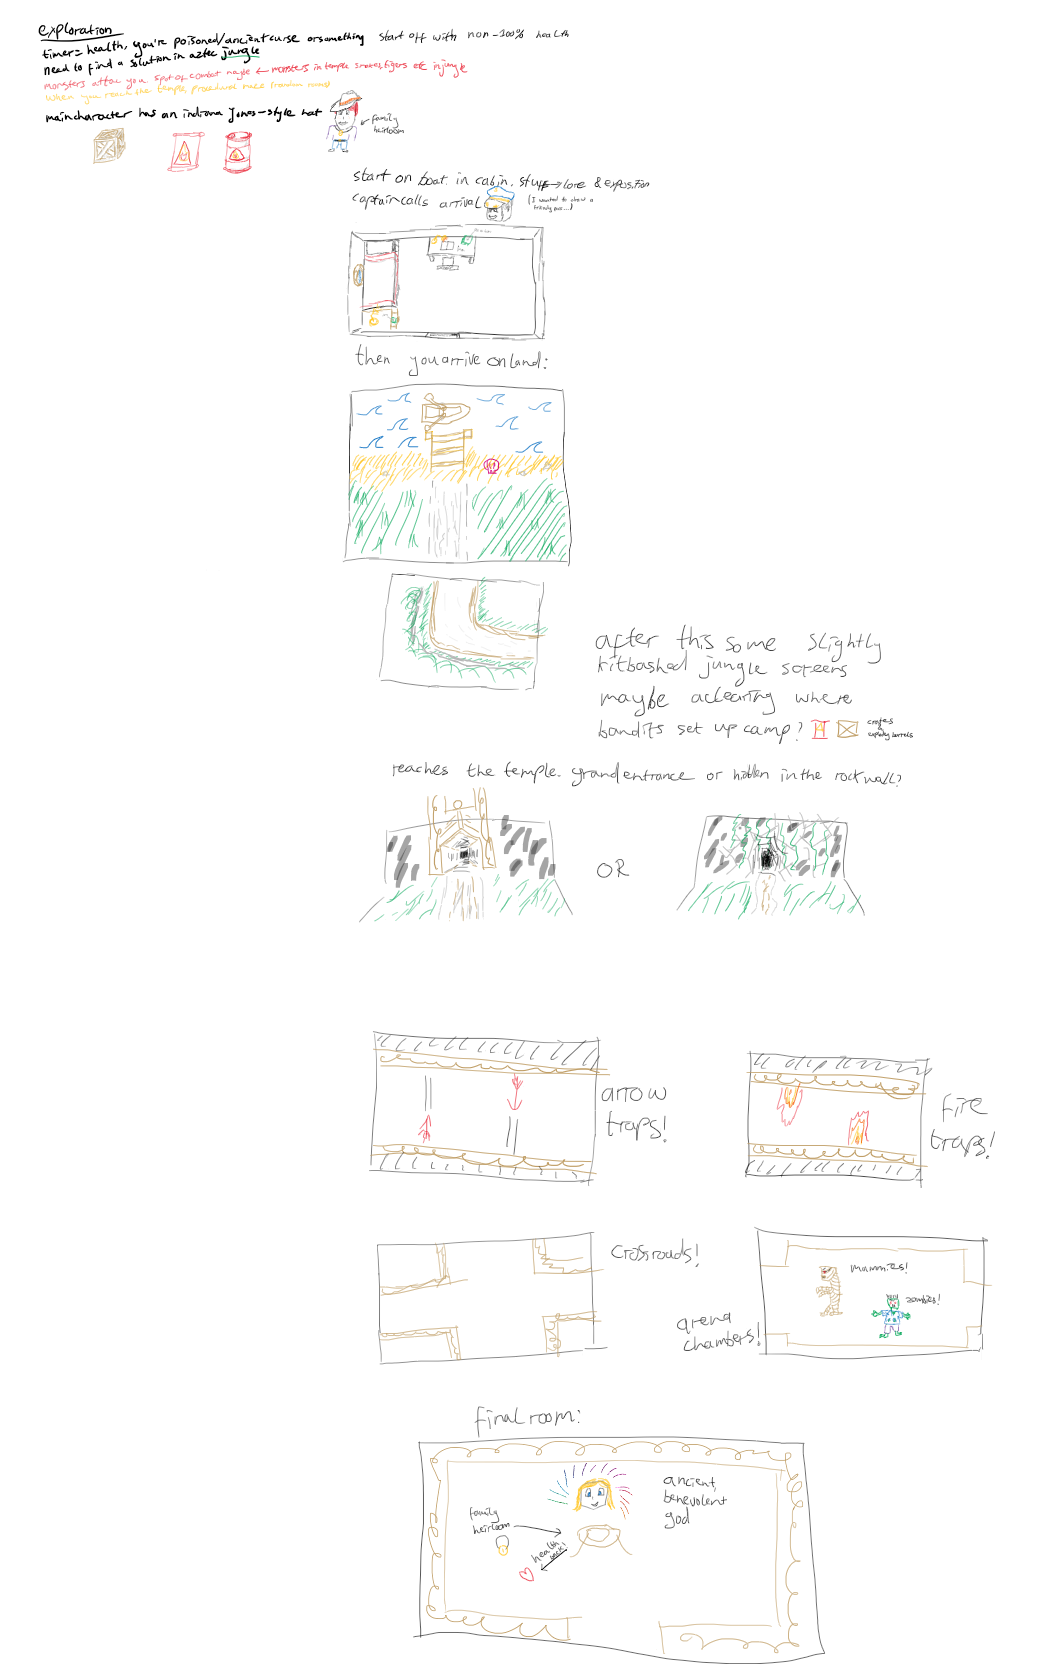 exploration
timer= health, you're poisoned/ancient curse or something start off with non-100% health
need to find a solution in aztec jungle
monsters attac you spot of combat maybe ← monsters in temple snakes, tigers etc in jungle
When you reach the temple, procedural maze from random rooms
main character has an indiana jones-style hat
← family
heirloom
start on boat. in cabin. stuff → lore & exposition
captain calls arrival
(I wanted to draw a
friendly pus...)
then you arrive on land:
after this some slightly
kitbashed jungle screens
maybe a clearing where
bandits set up camp?
crates
exploding barrels
reaches the temple. grand entrance or hidden in the rock wall?
OR
arrow
traps!
fire
traps!
crossroads!
mummies!
zombies!
arena
chambers!
final room:
ancient,
benevolent
god
family
heirloom
health
back!